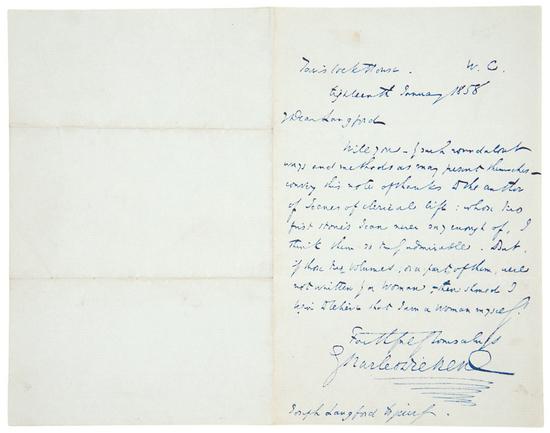 Tavistock House. W. C.
Eighteenth January 1858
My Dear Langford
Will you – by such roundabout
ways and methods as may present themselves –
convey this note of thanks to the author
of Scenes of Clerical Life: whose two
first stories I can never say enough of, I
think them so truly admirable. But,
if those two volumes, or a part of them, were
not written by a Woman – then should I
begin to believe that I am a woman myself.
Faithfully Yours always
Charles Dickens
Joseph Langford Esquire.